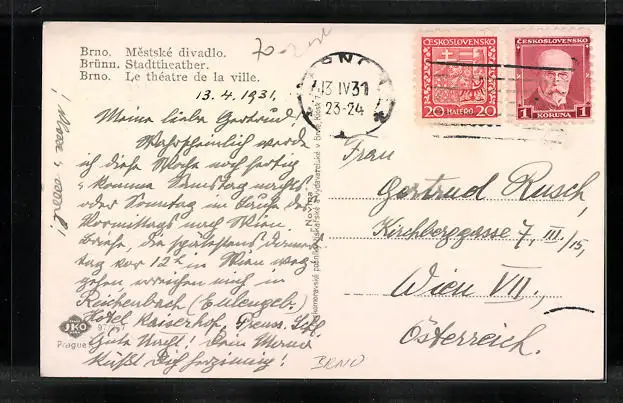 Brno. Městské divadlo.
Brünn. Stadttheather.
Brno. Le théatre de la ville.
13.4.1931.
Meine liebe Gertrud!
Wahrscheinlich werde
ich diese Woche noch fertig
u. komme Samstag nachts
oder Sonntag im Laufe des
Vormittags nach Wien.
Briefe, die spätestens Donners-
tag vor 12h in Wien weg-
gehen, erreichen mich in
Reichenbach (Eulengeb.)
Hotel Kaiserhof, Preuss. Schl.
Gute Nacht! Dein
küßt Dich herzinnig!
JKO
Prague
BRNO
13 IV 31
23-24
ČESKOSLOVENSKO
20 HALÉŘŮ 20
ČESKOSLOVENSKO
1 KORUNA 1
Frau
Gertrud Rusch,
Kirchberggasse 7, III./15,
Wien VII.,
Österreich.
BRNO